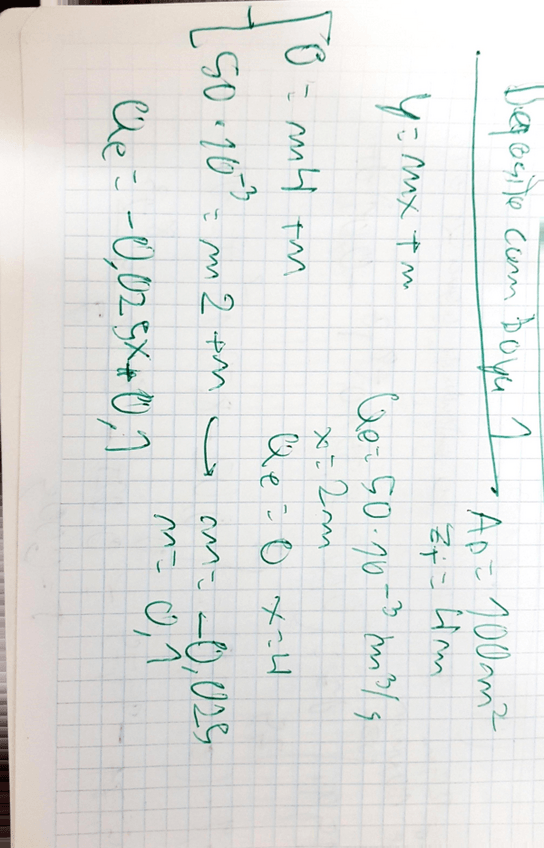 Deposito con boya 1
A_D = 100m²
z_i = 4m
y = mx + n
Q_e = 50·10⁻³ m³/s
x = 2m
Q_e = 0 x = 4
0 = m4 + n
50·10⁻³ = m2 + n → m = -0,025
n = 0,1
Q_e = -0,025x + 0,1